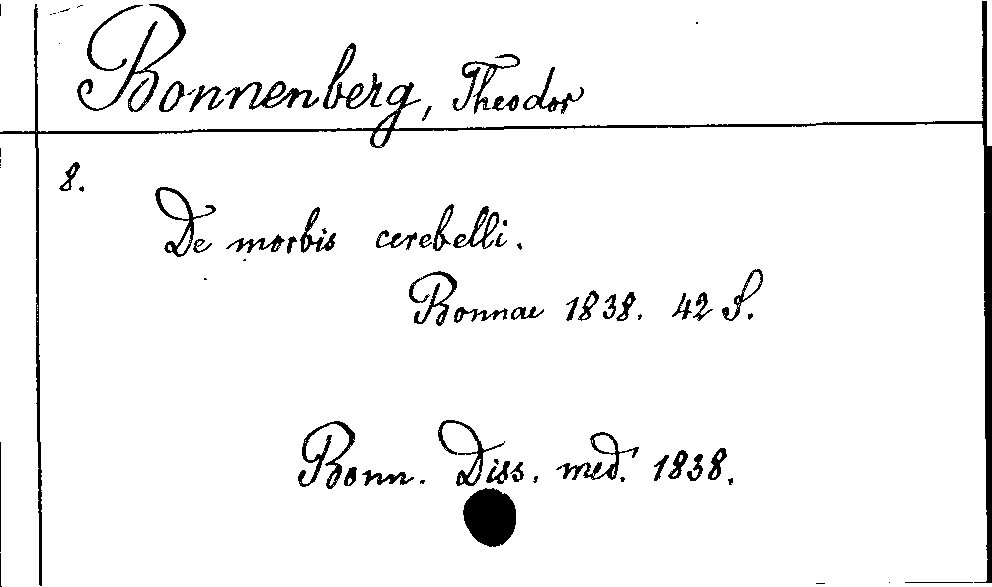 Bonnenberg, Theodor
8.
De morbis cerebelli.
Bonnae 1838. 42 S.
Bonn. Diss. med. 1838.